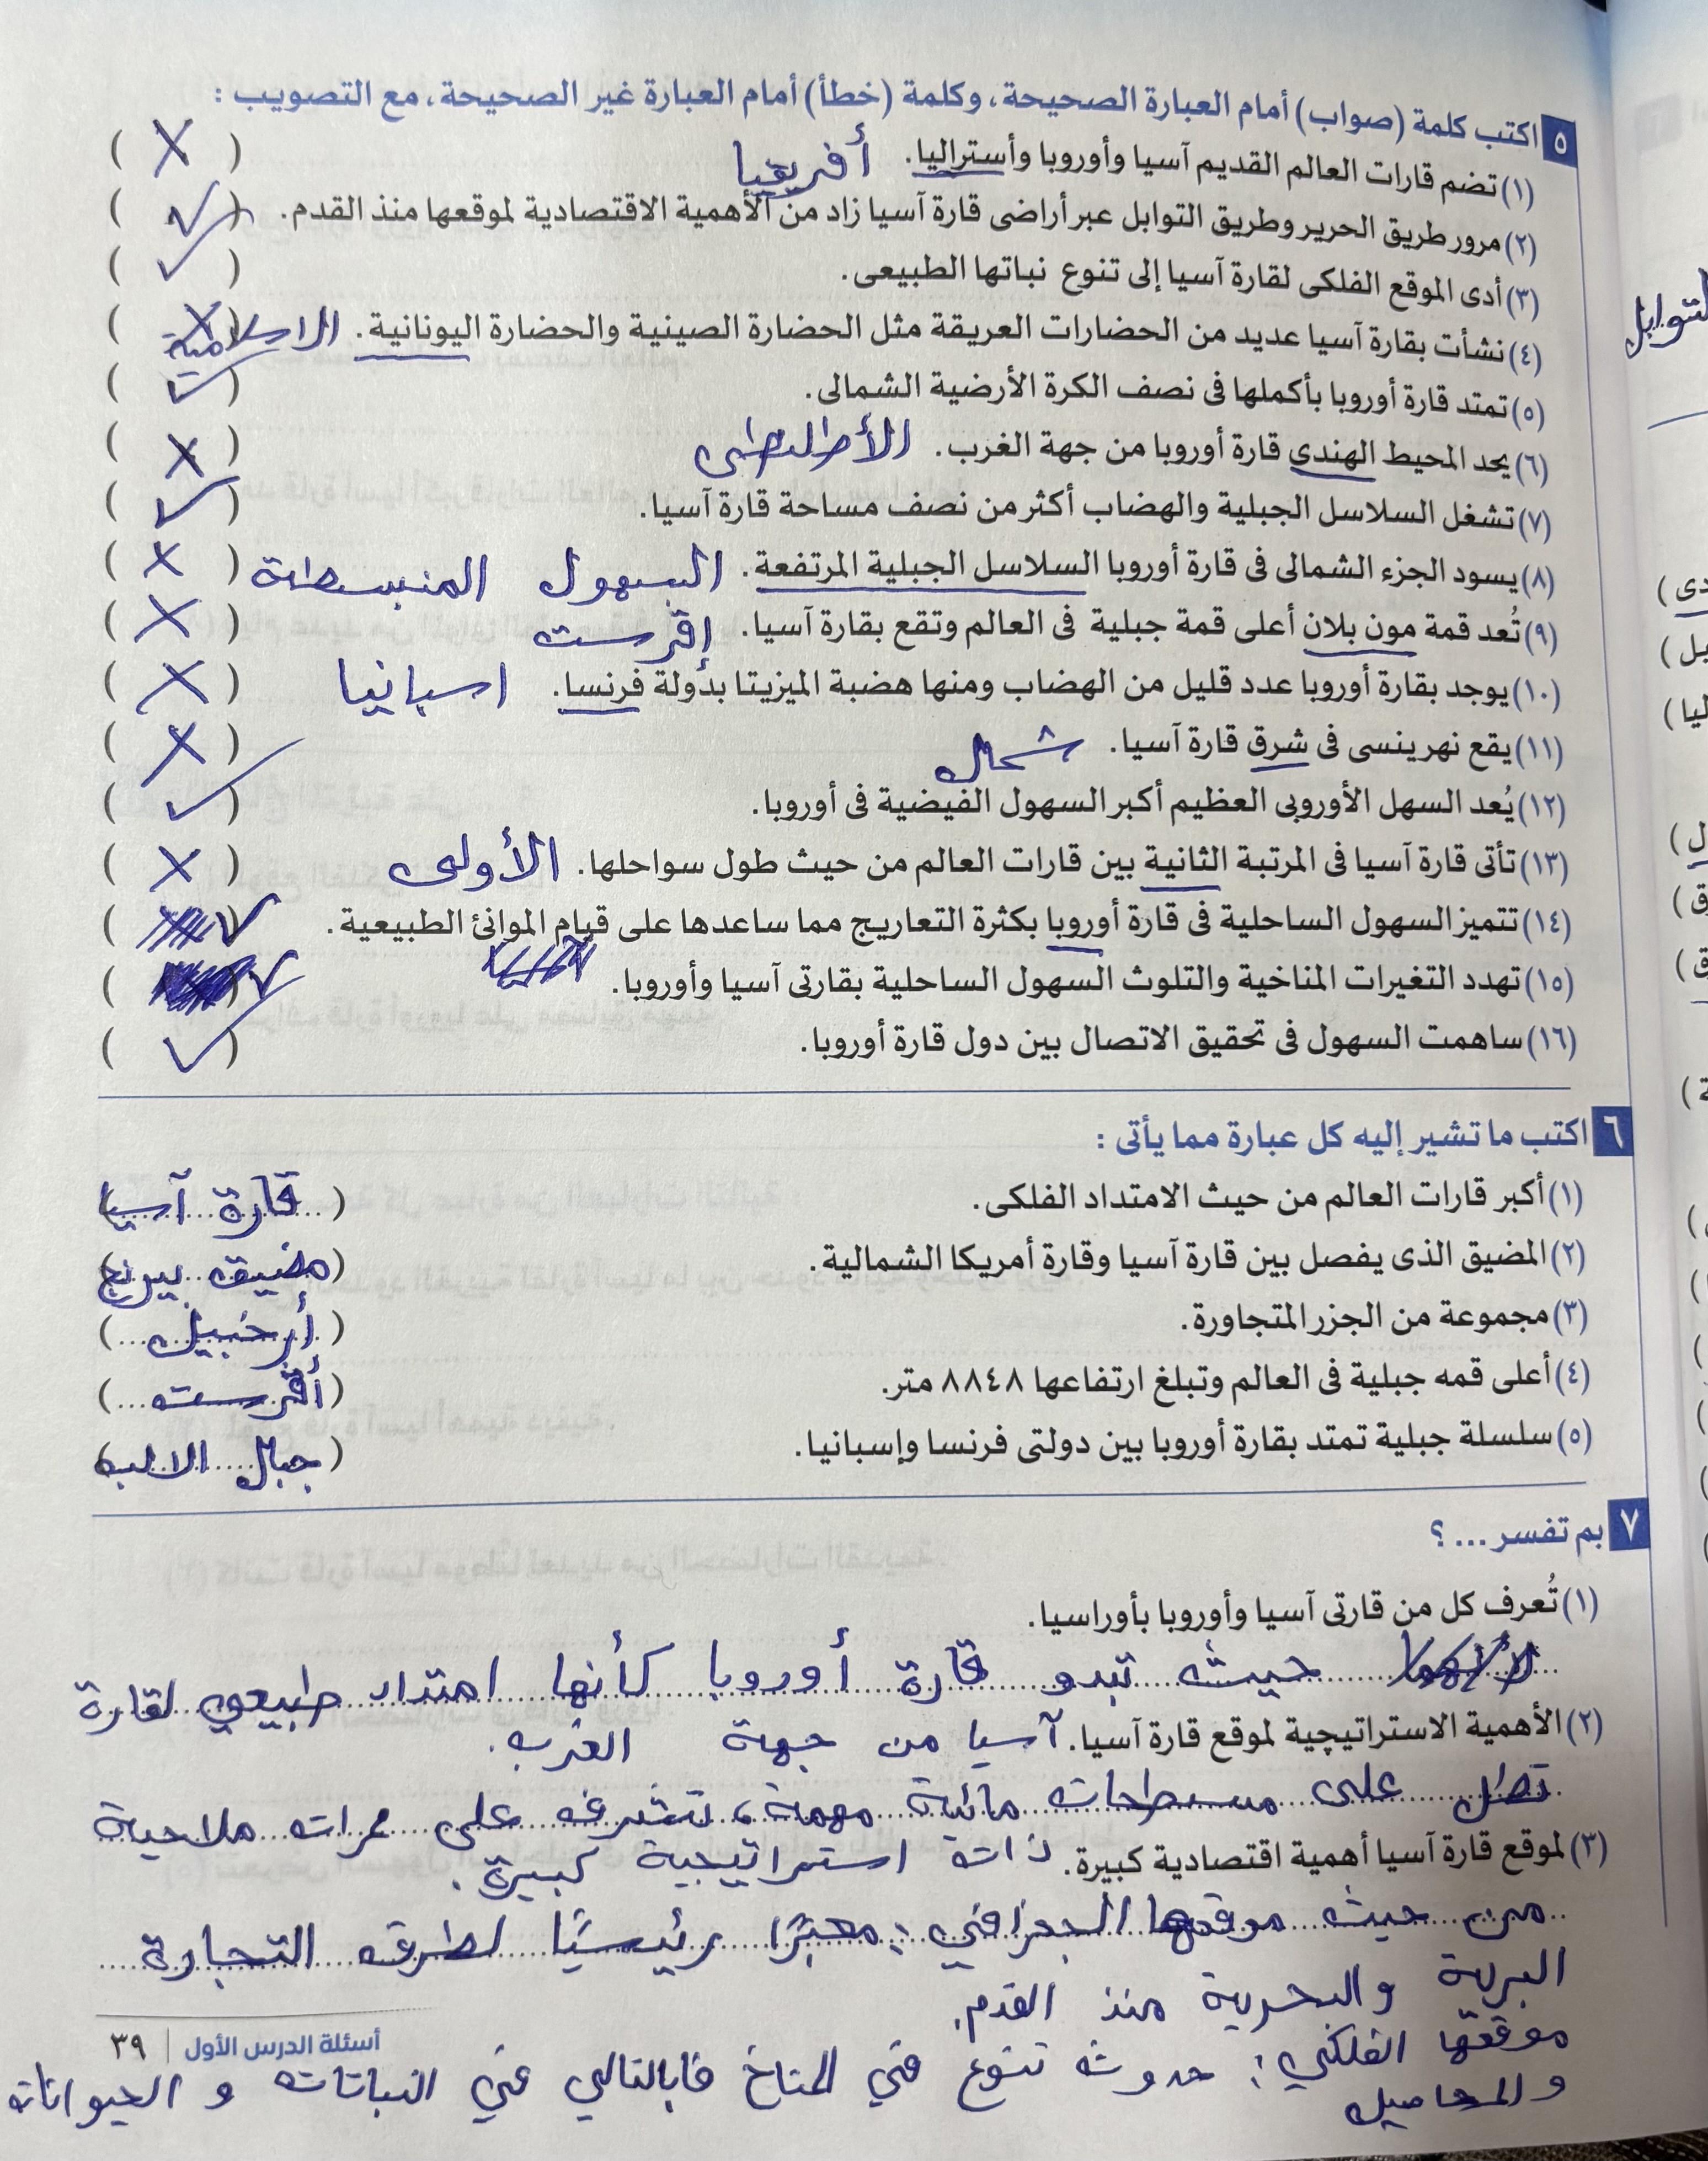 ٥ اكتب كلمة (صواب) أمام العبارة الصحيحة، وكلمة (خطأ) أمام العبارة غير الصحيحة، مع التصويب :
(١) تضم قارات العالم القديم آسيا وأوروبا وأستراليا. أفريقيا ( X )
(٢) مرور طريق الحرير وطريق التوابل عبر أراضى قارة آسيا زاد من الأهمية الاقتصادية لموقعها منذ القدم. ( ✓ )
(٣) أدى الموقع الفلكى لقارة آسيا إلى تنوع نباتها الطبيعى. ( ✓ )
(٤) نشأت بقارة آسيا عديد من الحضارات العريقة مثل الحضارة الصينية والحضارة اليونانية. الاسلامية ( X )
(٥) تمتد قارة أوروبا بأكملها فى نصف الكرة الأرضية الشمالى. ( ✓ )
(٦) يحد المحيط الهندى قارة أوروبا من جهة الغرب. الأطلنطى ( X )
(٧) تشغل السلاسل الجبلية والهضاب أكثر من نصف مساحة قارة آسيا. ( ✓ )
(٨) يسود الجزء الشمالى فى قارة أوروبا السلاسل الجبلية المرتفعة. السهول المنبسطة ( X )
(٩) تُعد قمة مون بلان أعلى قمة جبلية فى العالم وتقع بقارة آسيا. إفرست ( X )
(١٠) يوجد بقارة أوروبا عدد قليل من الهضاب ومنها هضبة الميزيتا بدولة فرنسا. اسبانيا ( X )
(١١) يقع نهر ينسى فى شرق قارة آسيا. شمال ( X )
(١٢) يُعد السهل الأوروبى العظيم أكبر السهول الفيضية فى أوروبا. ( ✓ )
(١٣) تأتى قارة آسيا فى المرتبة الثانية بين قارات العالم من حيث طول سواحلها. الأولى ( X )
(١٤) تتميز السهول الساحلية فى قارة أوروبا بكثرة التعاريج مما ساعدها على قيام الموانئ الطبيعية. ( ✓ )
(١٥) تهدد التغيرات المناخية والتلوث السهول الساحلية بقارتى آسيا وأوروبا. ( ✓ )
(١٦) ساهمت السهول فى تحقيق الاتصال بين دول قارة أوروبا. ( ✓ )
٦ اكتب ما تشير إليه كل عبارة مما يأتى :
(١) أكبر قارات العالم من حيث الامتداد الفلكى. (قارة آسيا)
(٢) المضيق الذى يفصل بين قارة آسيا وقارة أمريكا الشمالية. (مضيق بيرنج)
(٣) مجموعة من الجزر المتجاورة. (أرخبيل)
(٤) أعلى قمه جبلية فى العالم وتبلغ ارتفاعها ٨٨٤٨ متر. (أفرست)
(٥) سلسلة جبلية تمتد بقارة أوروبا بين دولتى فرنسا وإسبانيا. (جبال الالب)
٧ بم تفسر ... ؟
(١) تُعرف كل من قارتى آسيا وأوروبا بأوراسيا.
حيث تبدو قارة أوروبا كأنها امتداد طبيعي لقارة
آسيا من جهة الغرب.
(٢) الأهمية الاستراتيچية لموقع قارة آسيا.
تطل على مسطحات مائية مهمة، تشرف على ممرات ملاحية
ذات استراتيجية كبيرة.
(٣) لموقع قارة آسيا أهمية اقتصادية كبيرة.
من حيث موقعها الجغرافي: معبرًا رئيسيًا لطرق التجارة
البرية والبحرية منذ القدم.
موقعها الفلكي: حدوث تنوع في المناخ فابالتالي في النباتات و الحيوانات
و المحاصيل
أسئلة الدرس الأول | ٣٩